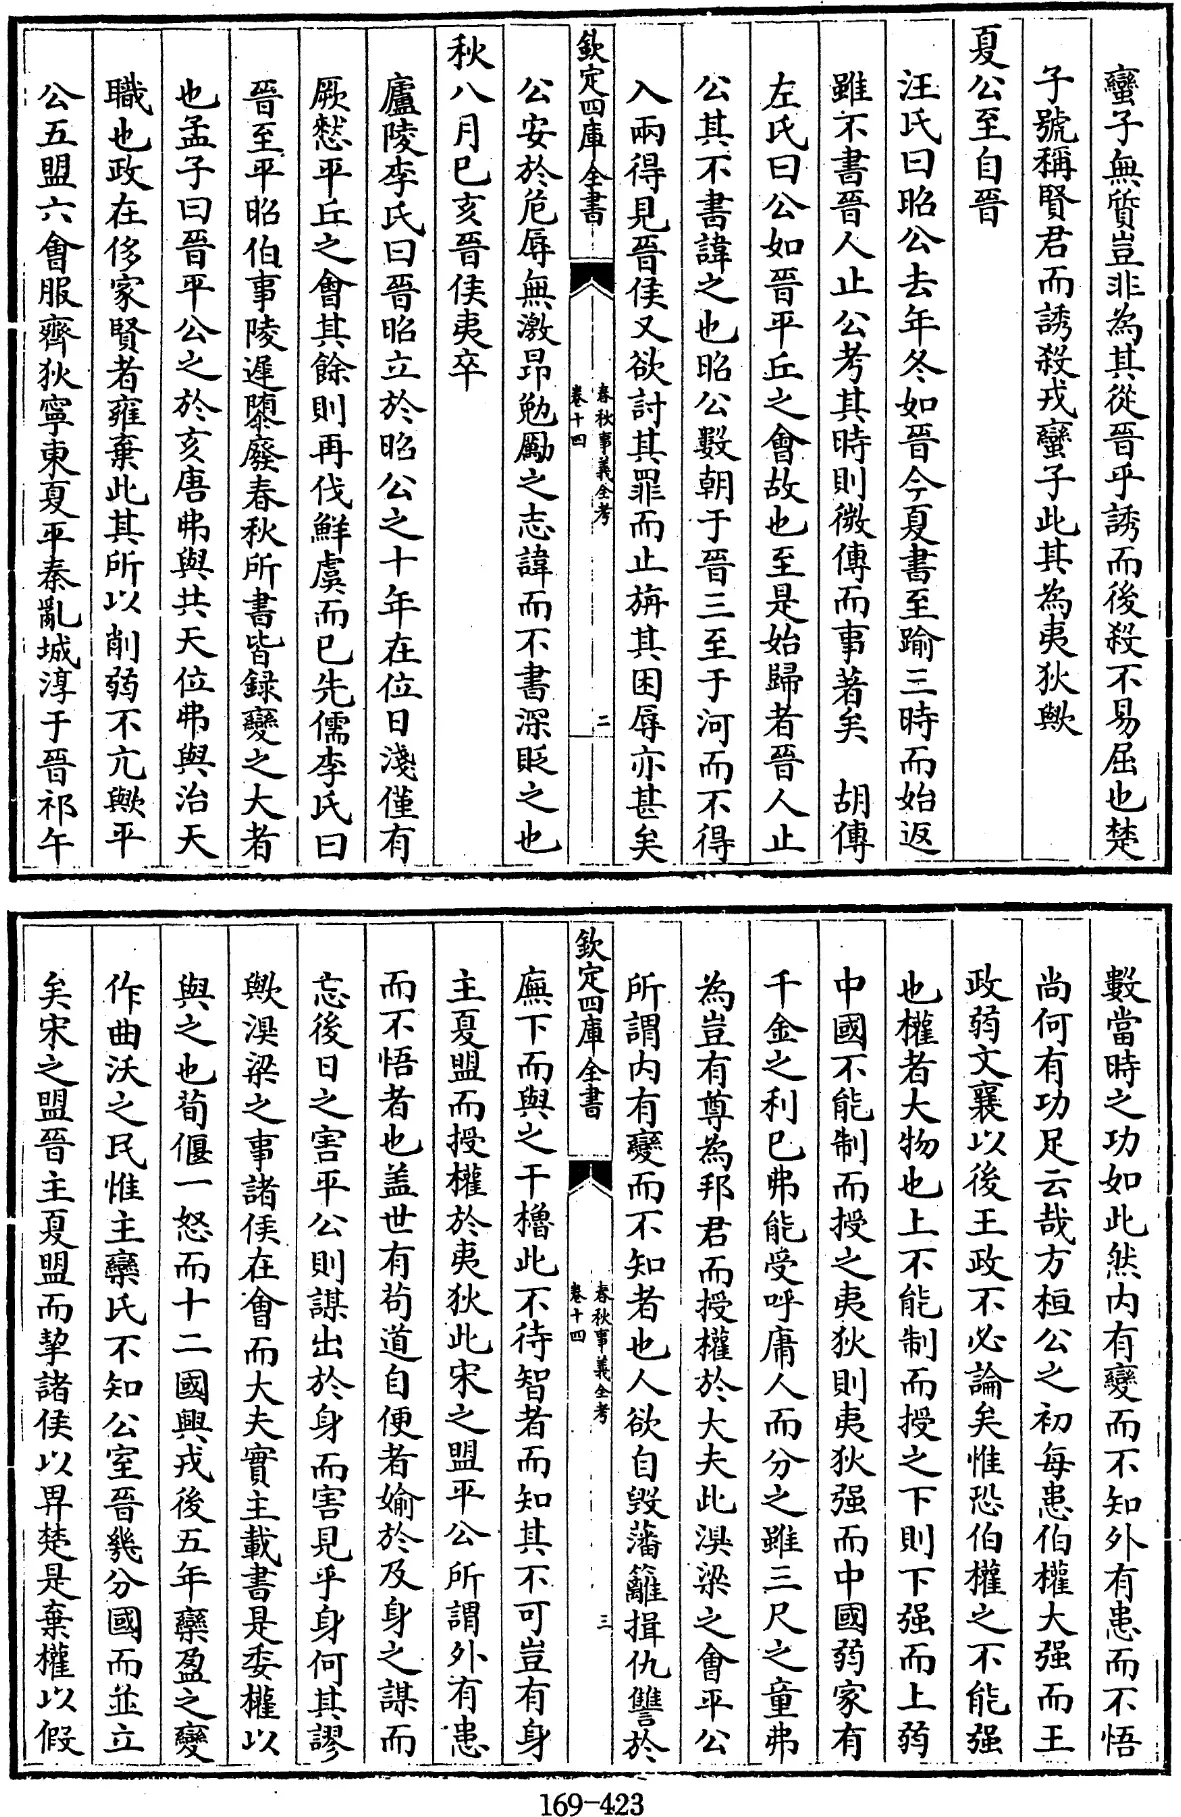 蠻子無質豈非為其從晉乎誘而後殺不易屈也楚
子號稱賢君而誘殺戎蠻子此其為夷狄歟
夏公至自晉
汪氏曰昭公去年冬如晉今夏書至踰三時而始返
雖不書晉人止公考其時則微傳而事著矣　胡傳
左氏曰公如晉平丘之會故也至是始歸者晉人止
公其不書諱之也昭公數朝于晉三至于河而不得
入兩得見晉侯又欲討其罪而止旃其困辱亦甚矣
欽定四庫全書
春秋事義全考
卷十四
二
公安於危辱無激昂勉勵之志諱而不書深貶之也
秋八月己亥晉侯夷卒
廬陵李氏曰晉昭立於昭公之十年在位日淺僅有
厥憖平丘之會其餘則再伐鮮虞而已先儒李氏曰
晉至平昭伯事陵遲隳廢春秋所書皆録變之大者
也孟子曰晉平公之於亥唐弗與共天位弗與治天
職也政在侈家賢者雍棄此其所以削弱不亢歟平
公五盟六會服齊狄寧東夏平秦亂城淳于晉祁午
數當時之功如此然内有變而不知外有患而不悟
尚何有功足云哉方桓公之初每患伯權大强而王
政弱文襄以後王政不必論矣惟恐伯權之不能强
也權者大物也上不能制而授之下則下强而上弱
中國不能制而授之夷狄則夷狄强而中國弱家有
千金之利已弗能受呼庸人而分之雖三尺之童弗
為豈有尊為邦君而授權於大夫此溴梁之會平公
所謂内有變而不知者也人欲自毀藩籬揖仇讐於
欽定四庫全書
春秋事義全考
卷十四
三
廡下而與之干櫓此不待智者而知其不可豈有身
主夏盟而授權於夷狄此宋之盟平公所謂外有患
而不悟者也盖世有茍道自便者媮於及身之謀而
忘後日之害平公則謀出於身而害見乎身何其謬
歟溴梁之事諸侯在會而大夫實主載書是委權以
與之也荀偃一怒而十二國興戎後五年欒盈之變
作曲沃之民惟主欒氏不知公室晉幾分國而並立
矣宋之盟晉主夏盟而挈諸侯以畀楚是棄權以假
169-423